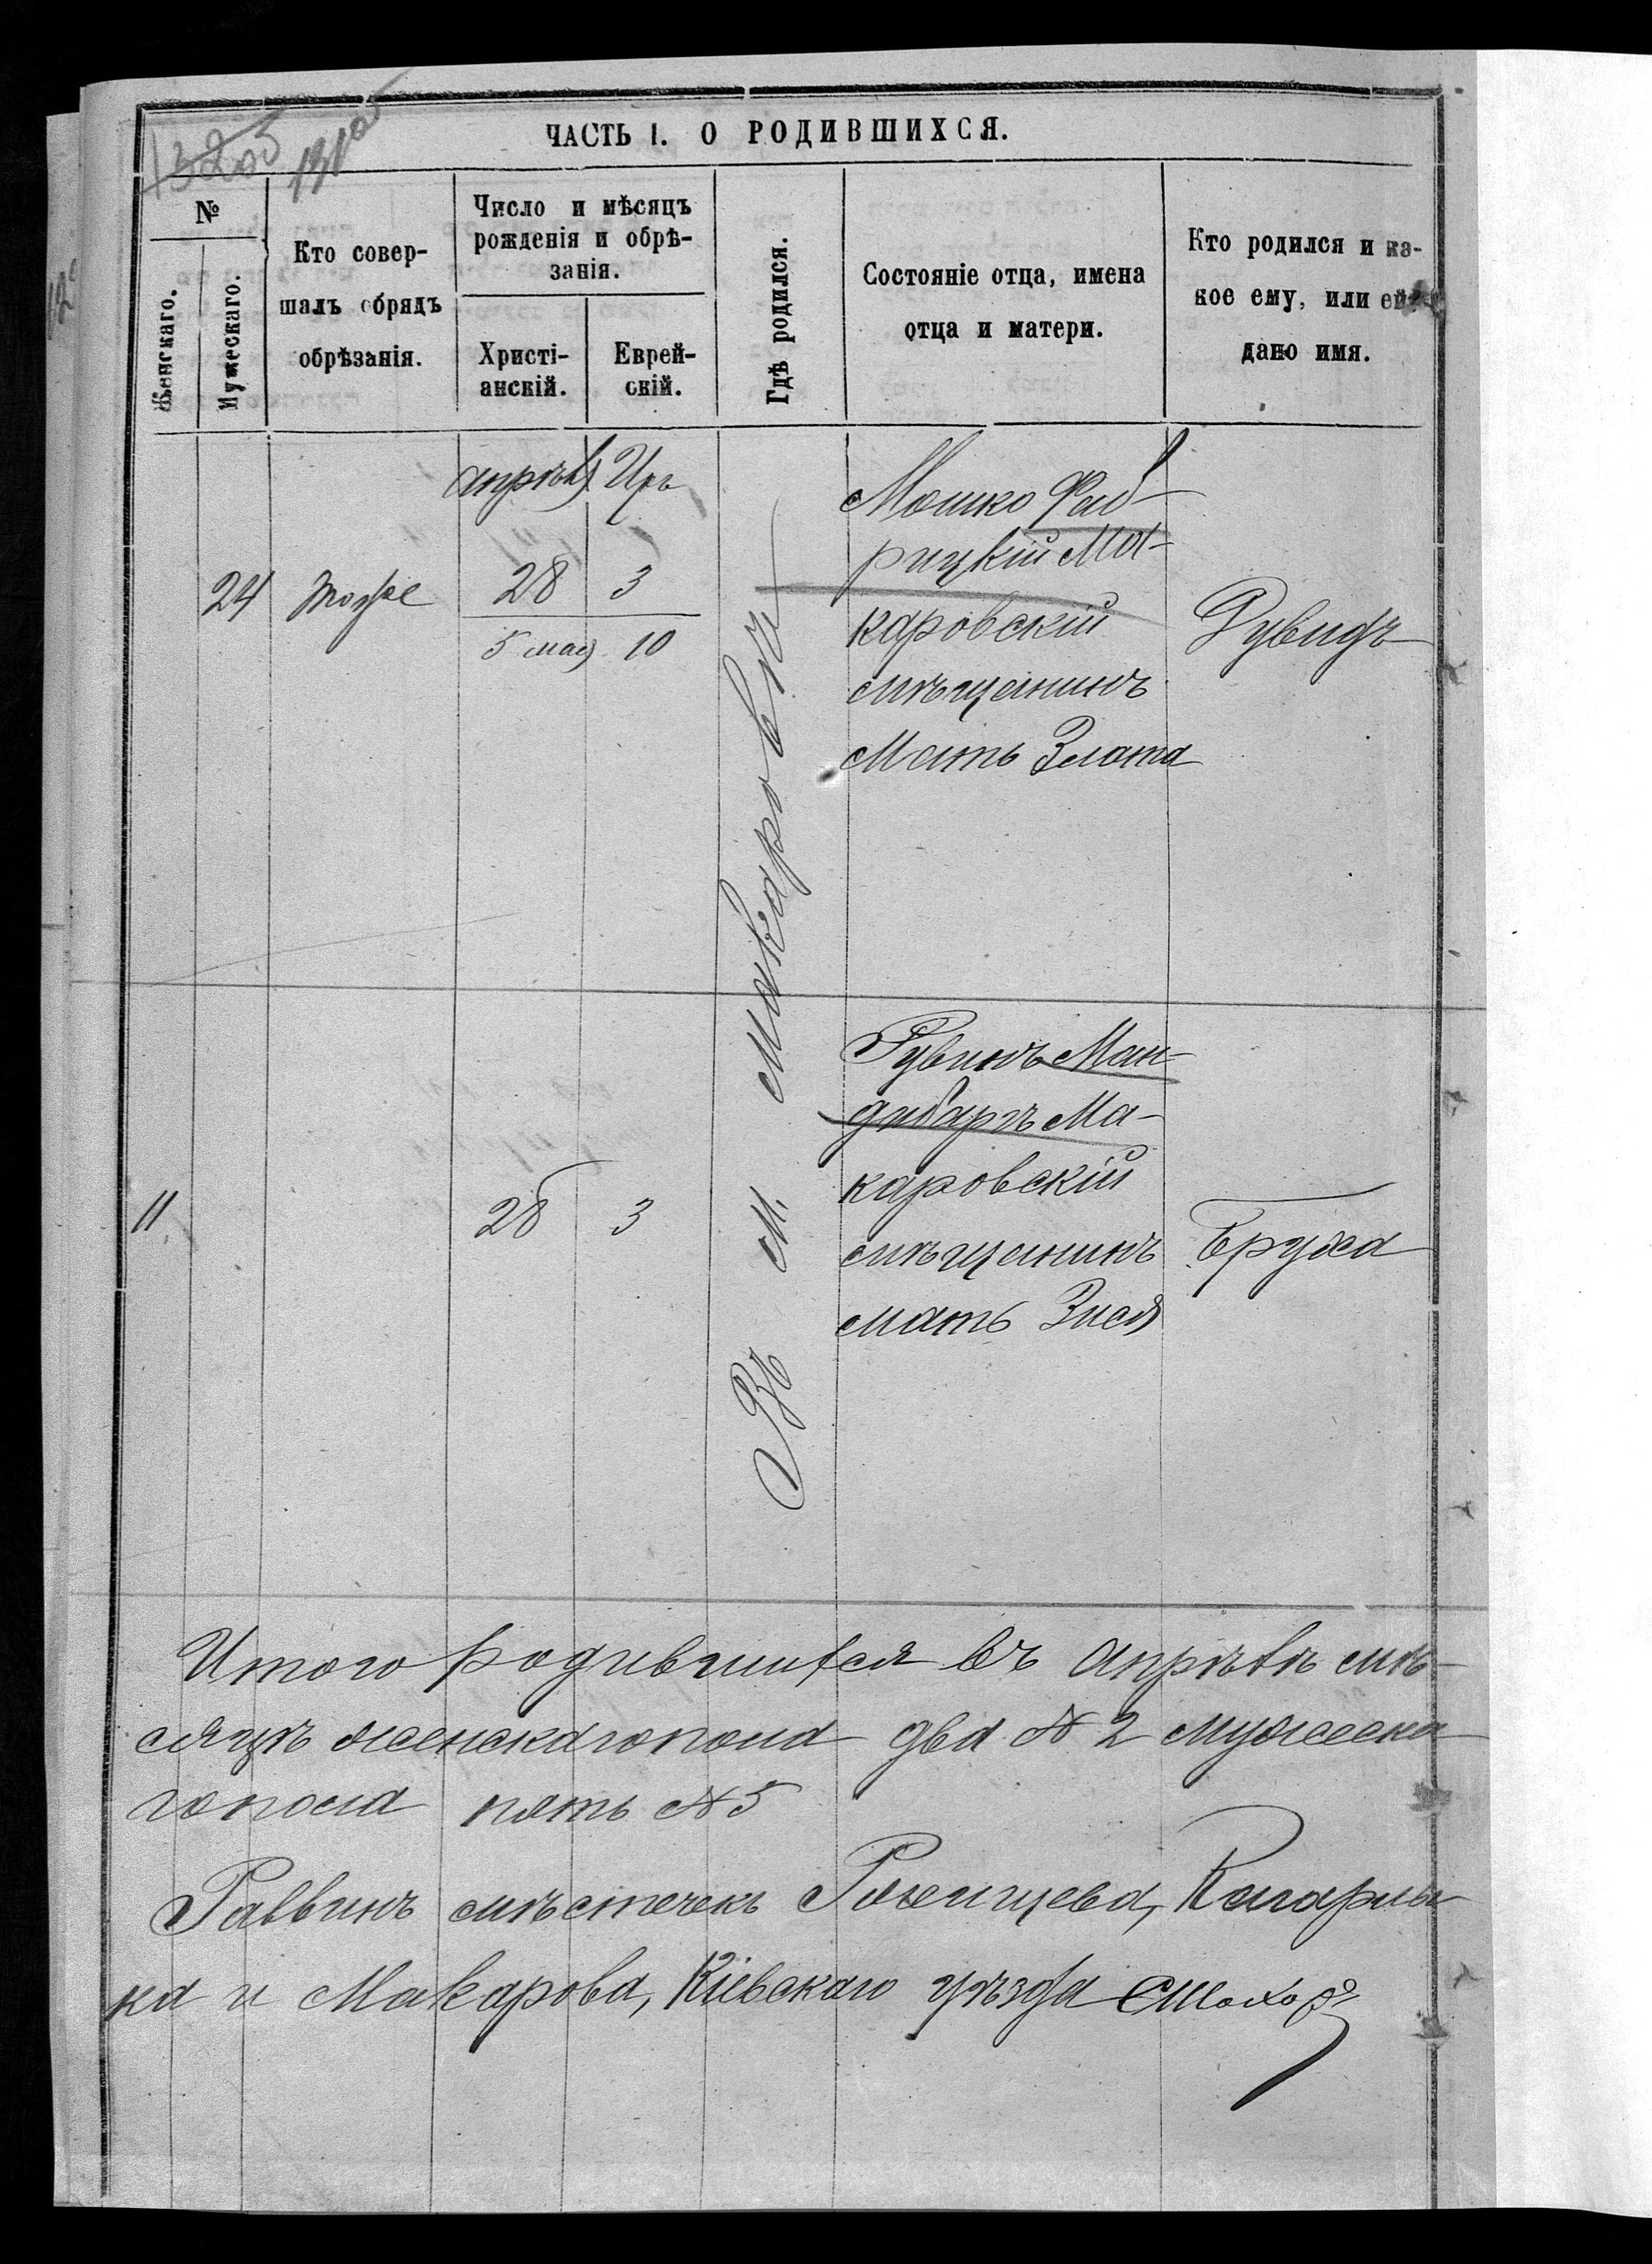 132об
131об
ЧАСТЬ I. О РОДИВШИХСЯ.
№
Женскаго.
Мужескаго.
Кто совер-
шалъ обрядъ
обрѣзанія.
Число и мѣсяцъ
рожденія и обрѣ-
занія.
Христі-
анскій.
Еврей-
скій.
Гдѣ родился.
Состояніе отца, имена
отца и матери.
Кто родился и ка-
кое ему, или ей
дано имя.
апрѣля Иръ
24 тоже 28 3
5 мая 10
Мошко Фаб-
рицкій Ма-
каровскій
мѣщанинъ
Мать Злата
Рувинъ
Въ м. Макаровѣ
11 28 3
Рувинъ Ман-
дибаръ Ма-
каровскій
мѣщанинъ
мать Зися
Бруха
Итого родившихся въ апрѣлѣ мѣ-
сяцѣ женскаго пола два № 2 мужеска
го пола пять № 5
Раввинъ мѣстечекъ Ракитнева, Кагарлы
ка и Макарова, Кіевскаго уѣзда